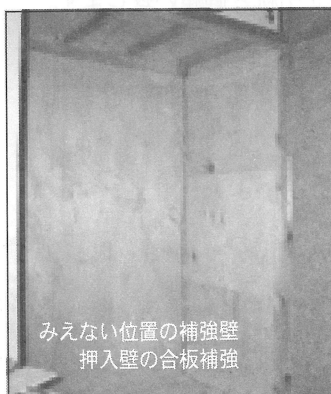 みえない位置の補強壁
押入壁の合板補強